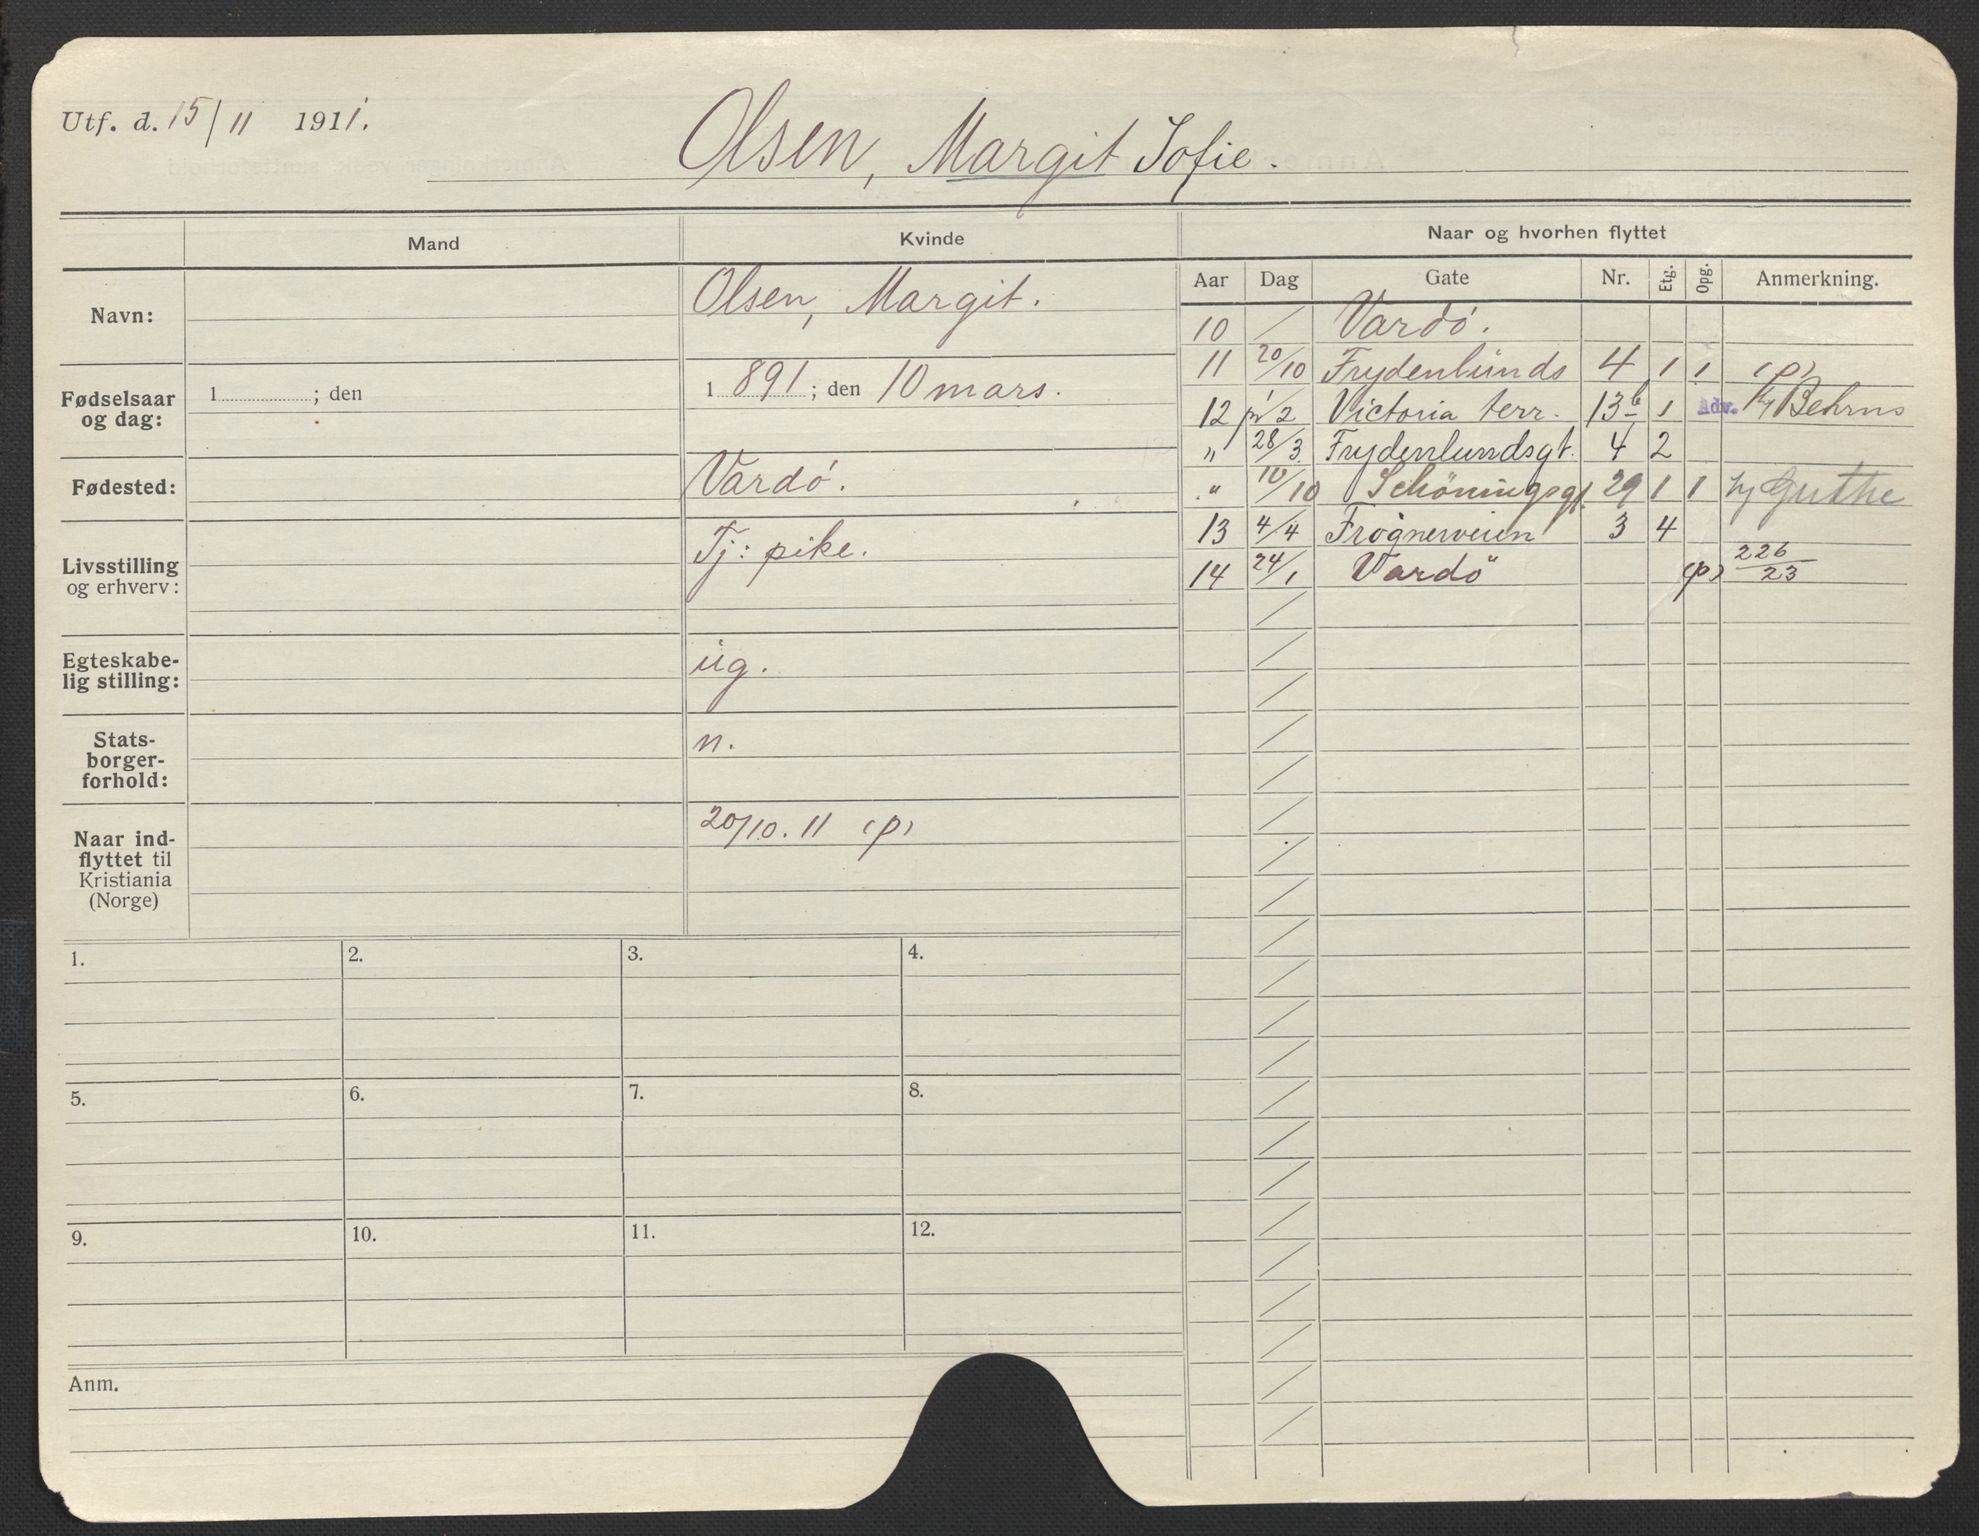 Utf. d. 15/11 1911.
Olsen, Margit Sofie.
Mand
Kvinde
Naar og hvorhen flyttet
Aar Dag Gate Nr. Etg. Opg. Anmerkning.
Navn:
Olsen, Margit.
Fødselsaar
og dag:
1 ; den
1 891 ; den 10 mars.
Fødested:
Vardö.
Livsstilling
og erhverv:
Tj: pike.
Egteskabe-
lig stilling:
ug.
Stats-
borger-
forhold:
n.
Naar ind-
flyttet til
Kristiania
(Norge)
20/10. 11 (p)
10 / Vardö.
11 20/10 Frydenlunds 4 1 1 (p)
12 2 Victoria terr. 13b 1 Adv. Behrns
" 28/3 Frydenlundsgt. 4 2
" 10/10 Schöningsgt. 29 1 1 Guthe
13 4/4 Frognerveien 3 4
14 24/1 Vardö (p) 226/23
1. 2. 3. 4.
5. 6. 7. 8.
9. 10. 11. 12.
Anm.